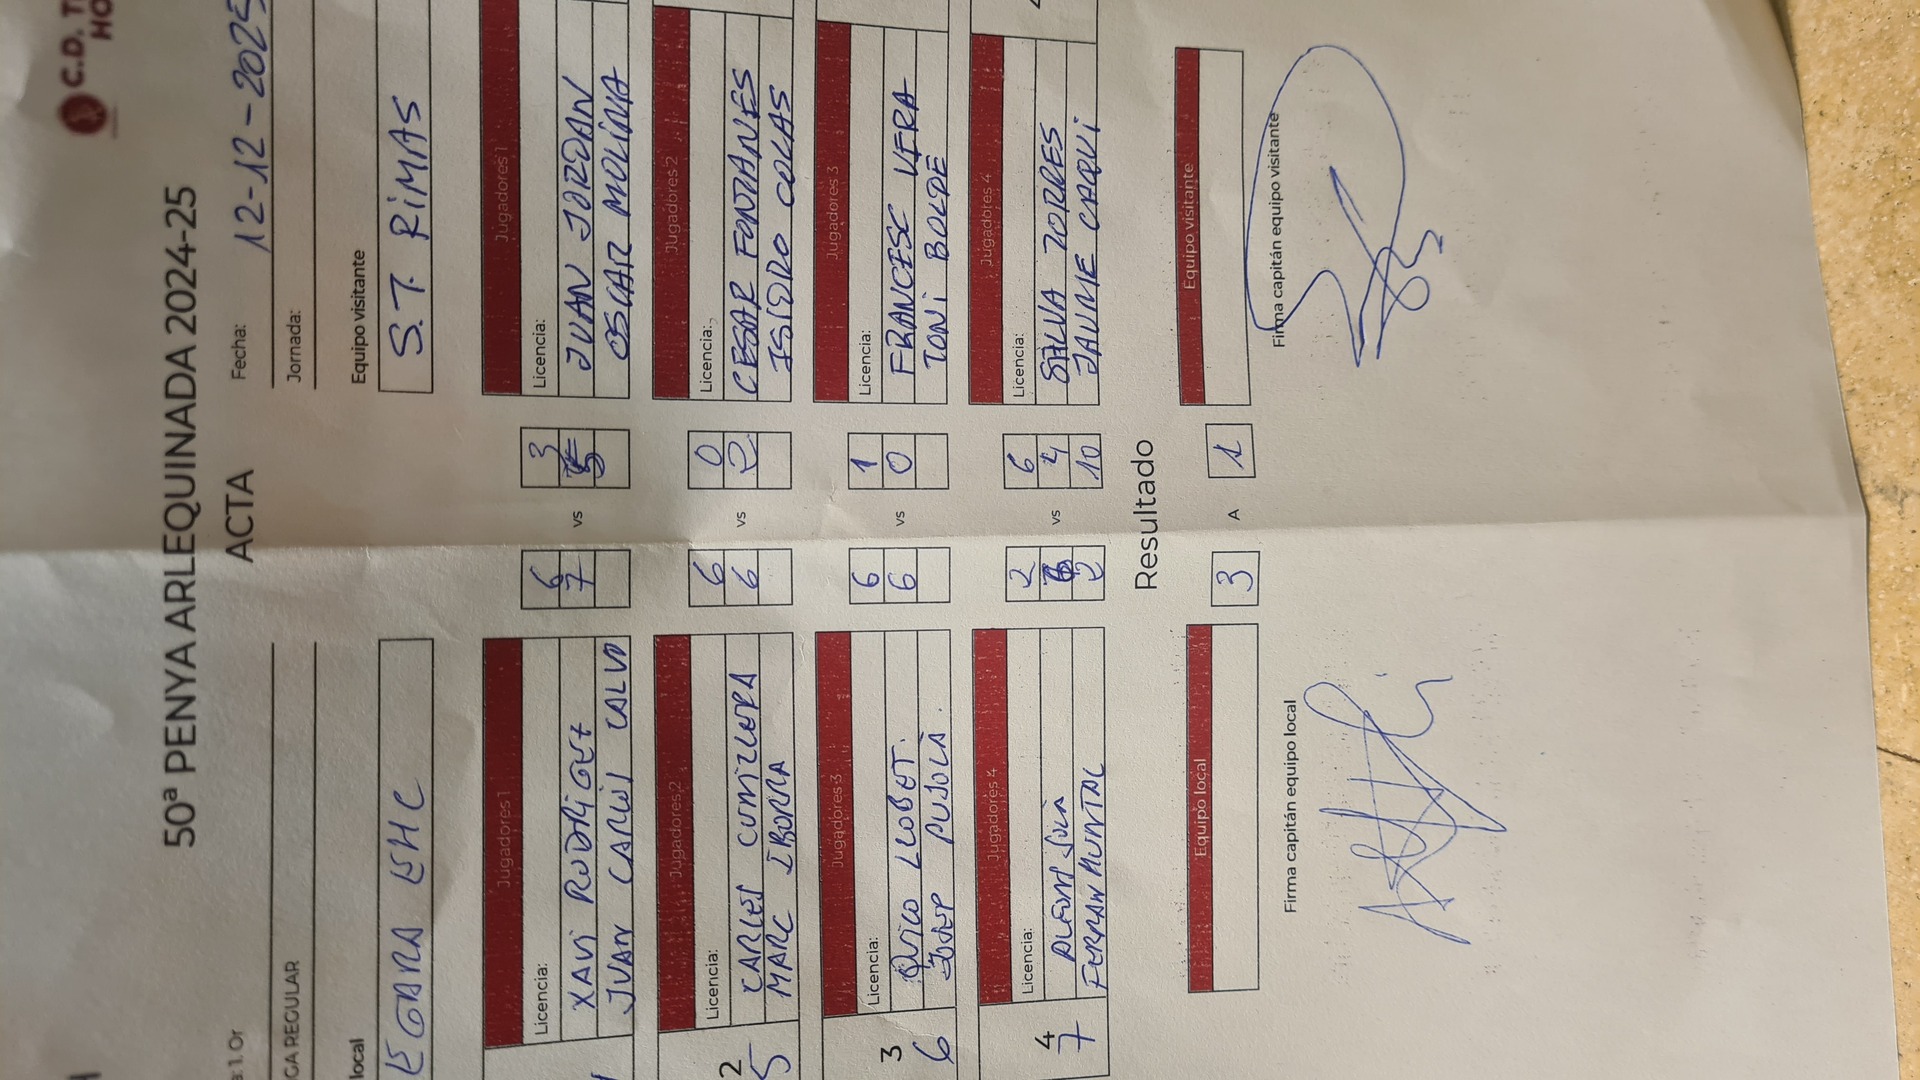 C.D. T
HO
50ª PENYA ARLEQUINADA 2024-25
ACTA
Fecha: 12-12-2025
GA REGULAR
Jornada:
local
Equipo visitante
EGARA EHC
S.T. RIMAS
Jugadores 1
Jugadores 1
Licencia:
6
3
Licencia:
XAVI RODRIGUEZ
7
vs
5
JUAN JORDAN
JUAN CARLOS CALVO
OSCAR MOLINA
Jugadores 2
Jugadores 2
2
Licencia:
6
0
Licencia:
5
CARLES COMELLERA
6
vs
2
CESAR FONTANES
MARC IBORRA
ISIDRO COLAS
Jugadores 3
Jugadores 3
3
Licencia:
6
1
Licencia:
6
QUICO LLOBET.
6
vs
0
FRANCESC VERA
JOSEP PUJOLÀ.
TONI BOLDÉ
Jugadores 4
Jugadores 4
4
Licencia:
2
6
Licencia:
7
ALFONS SOLÀ
6
vs
4
SILVA TORRES
FERRAN MUNTAL
2
10
JAUME CAPVI
Resultado
Equipo local
3
A
1
Equipo visitante
Firma capitán equipo local
Firma capitán equipo visitante